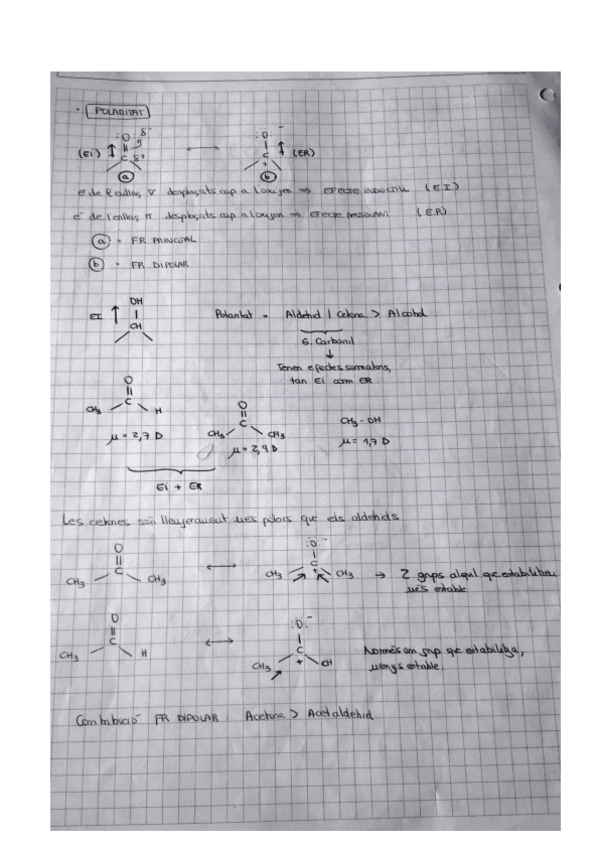 · POLARITAT
:O: δ-
:O: -
(EI) C δ+
C + (ER)
a
b
e- de l'enllaç σ desplaçats cap a l'oxigen ⇒ EFECTE INDUCTIU (EI)
e- de l'enllaç π desplaçats cap a l'oxigen ⇒ EFECTE RESSONANT (ER)
a = FR PRINCIPAL
b = FR DIPOLAR
OH
EI ↑ CH
Polaritat = Aldehid / Cetona > Alcohol
G. Carbonil
↓
Tenen efectes sumatoris,
tan EI com ER
O
CH3 C H
μ = 2,7 D
O
CH3 C CH3
μ = 2,9 D
CH3 - OH
μ = 1,7 D
EI + ER
Les cetones són lleugerament més polars que els aldehids
O
CH3 C CH3
↔
:O: -
CH3 C + CH3
→ 2 grups alquil que estabilitzen
més estable
O
CH3 C H
↔
:O: -
CH3 C + CH
Només un grup que estabilitza,
menys estable
Contribució FR DIPOLAR: Acetona > Acetaldehid